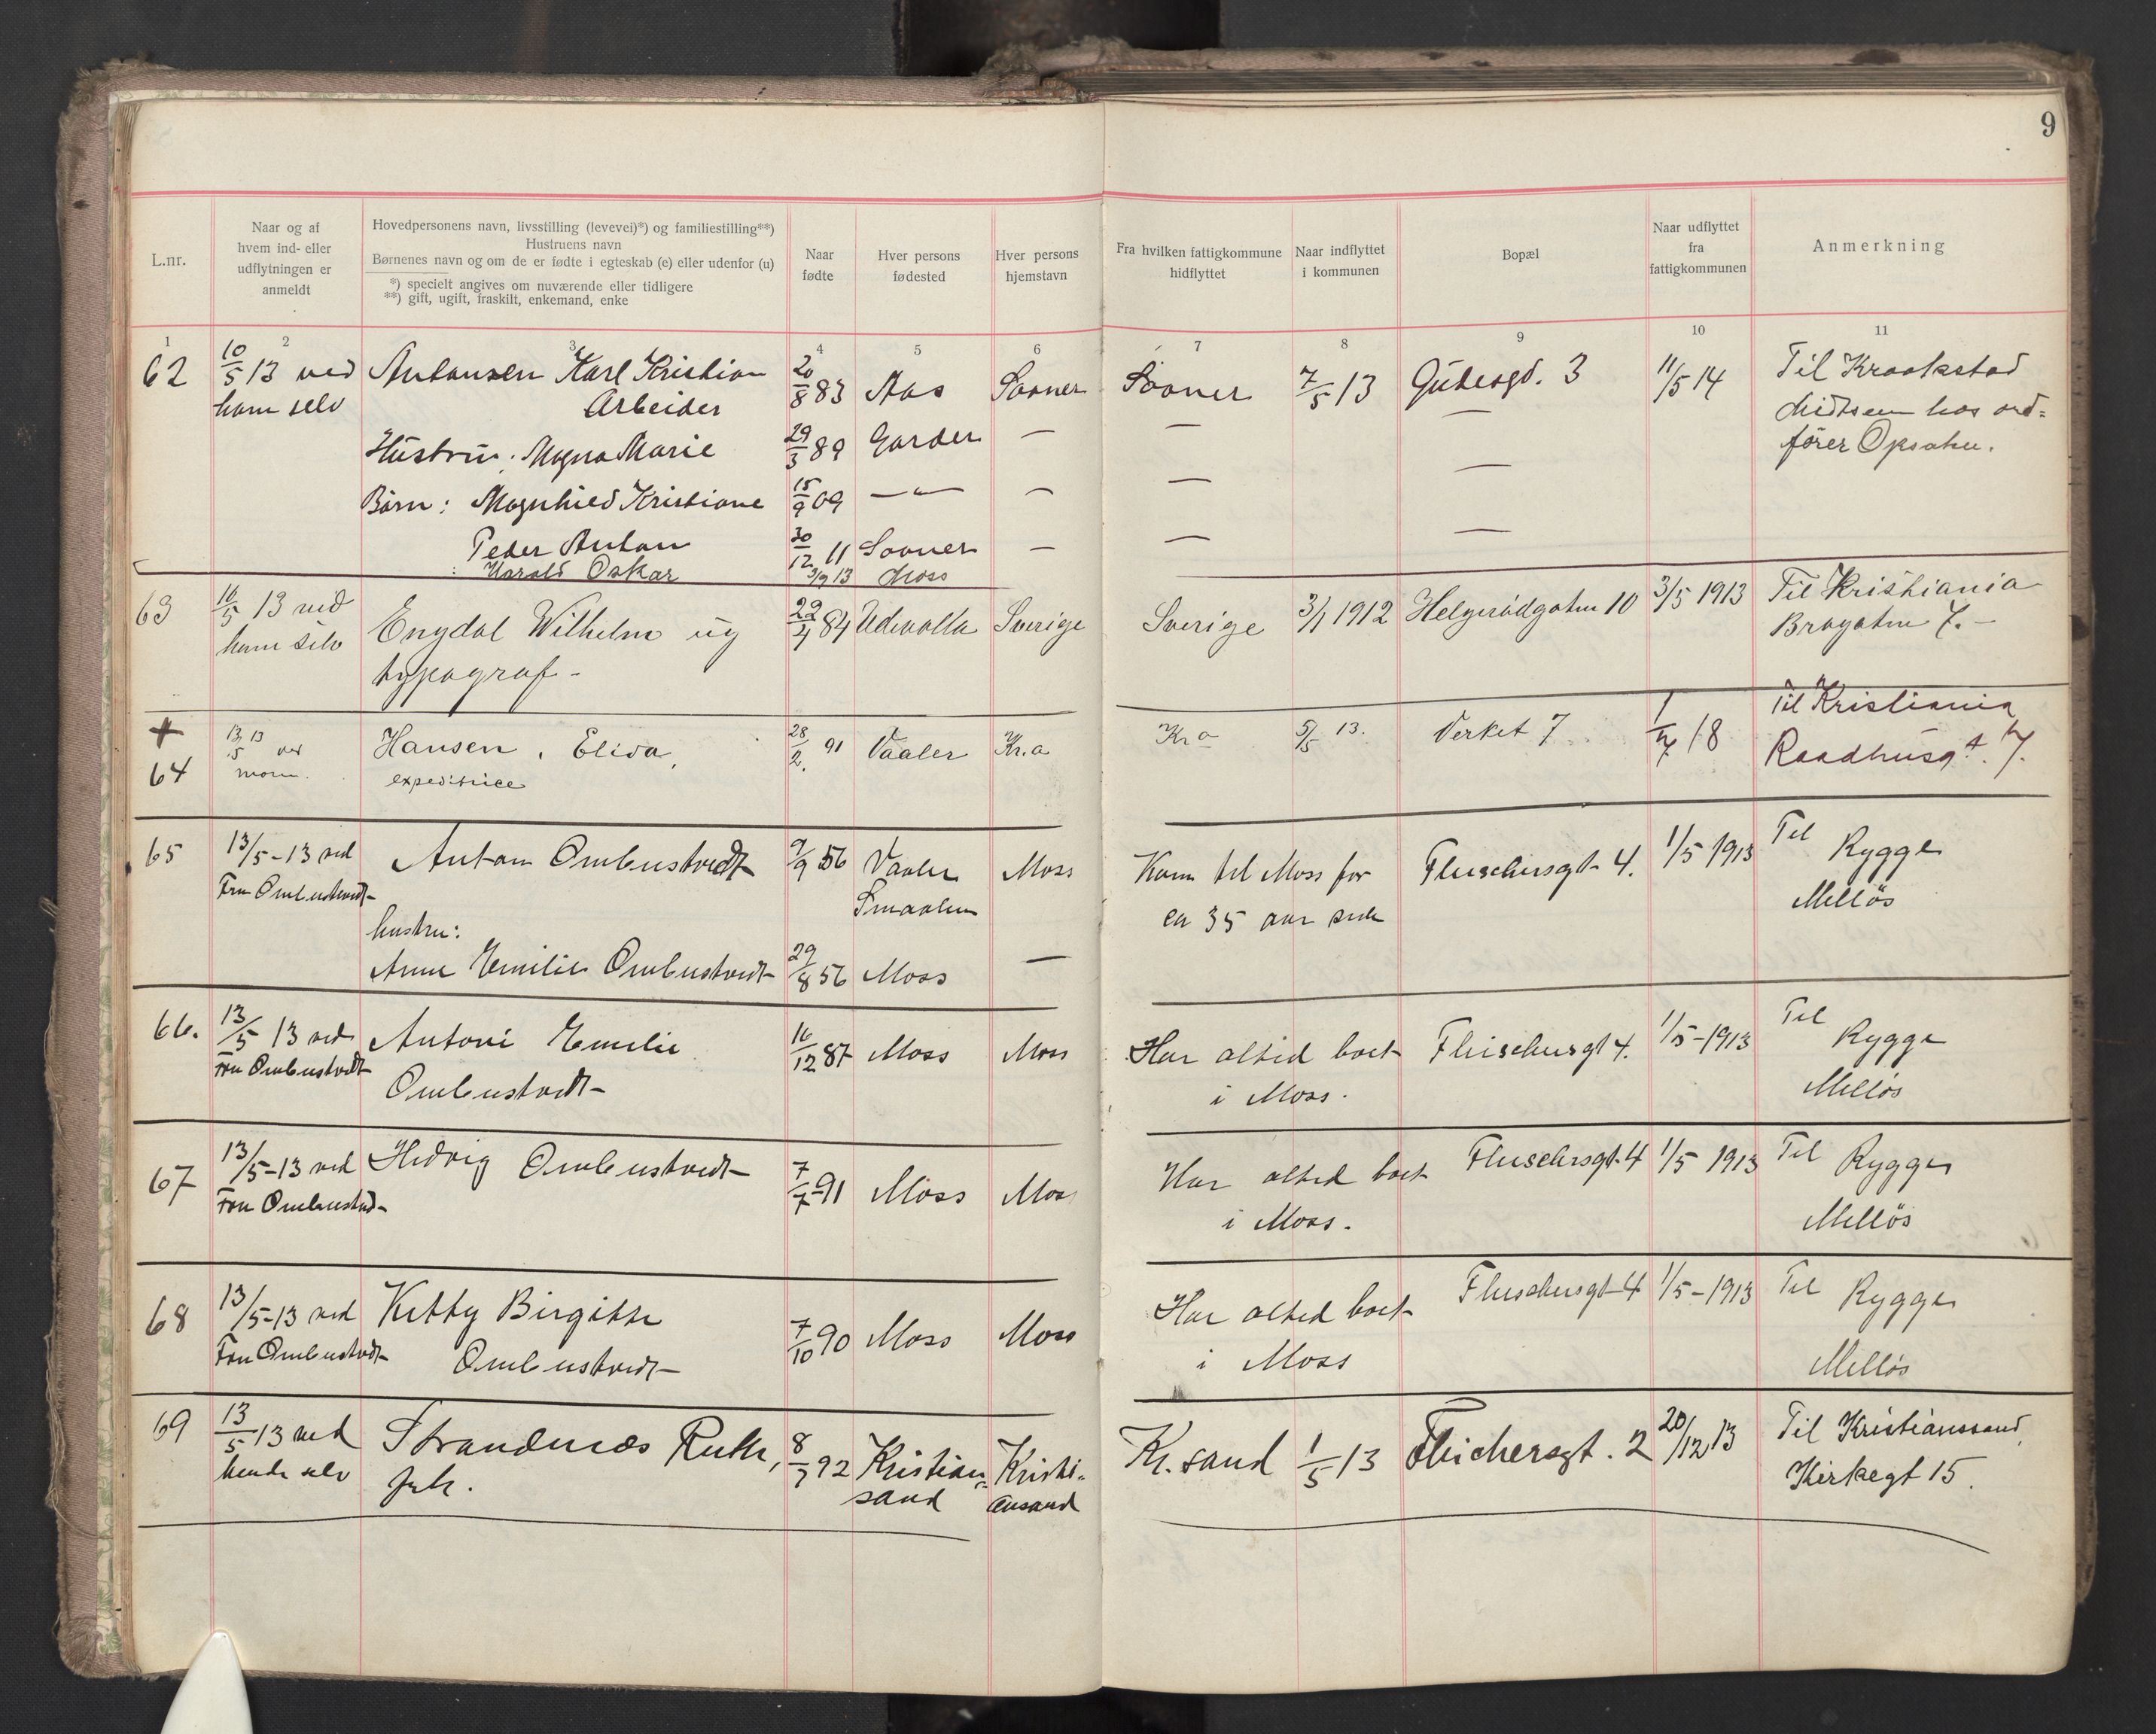 9
L.nr.
Naar og af
hvem ind- eller
udflytningen er
anmeldt
Hovedpersonens navn, livsstilling (levevei)*) og familiestilling**)
Hustruens navn
Børnenes navn og om de er fødte i egteskab (e) eller udenfor (u)
*) specielt angives om nuværende eller tidligere
**) gift, ugift, fraskilt, enkemand, enke
Naar
fødte
Hver persons
fødested
Hver persons
hjemstavn
Fra hvilken fattigkommune
hidflyttet
Naar indflyttet
i kommunen
Bopæl
Naar udflyttet
fra
fattigkommunen
Anmerkning
1 2 3 4 5 6 7 8 9 10 11
62 10/5 13 ved Antonsen Karl Kristian 20/8 83 Aas Sooner Sooner 7/5 13 Gudesgd. 3 11/5 14 Til Kraakstad
ham selv Arbeider — hos ord=
Hustru: Magna Marie 29/3 89 Garder — — fører Opsahn.
Børn: Magnhild Kristiane 15/9 09 —〃— — — —
Peder Anton 30/12 11 Sooner — — —
: Harald Oskar 3/9 13 Moss
63 16/5 13 ved Engdal Wilhelm ug 22/4 84 Udevalla Sverige Sverige 3/1 1912 Helgerødgaten 10 3/5 1913 Til Kristiania
ham selv typograf - Brogaten 7. -
+ 13/5 13 ved Hansen, Elisa, 28/2. 91 Vaaler Kr.a Kr a 5/5 13. Verket 7 1/4 18 Til Kristiania
64 morn. expeditrice Raadhusgt. 7.
65 13/5-13 ved Anton Ombustvedt 9/9 56 Vaaler Moss Kom til Moss for Fleischersgt 4. 1/5 1913 Til Rygge
Fru Ombustvedt Smaalen ca 35 aar siden Melløs
hustru:
Anne Emilie Ombustvedt 29/8 56 Moss —
66. 13/5 13 ved Antoni Emilie 16/12 87 Moss Moss Har altid boet Fleischersgt 4. 1/5-1913 Til Rygge
Fru Ombustvedt Ombustvedt i Moss. Melløs
67 13/5-13 ved Hedvig Ombustvedt 7/7-91 Moss Moss Har altid boet Fleischersgt. 4 1/5 1913 Til Rygge
Fru Ombustvedt i Moss. Melløs
68 13/5-13 ved Kitty Birgitte 7/10 90 Moss Moss Har altid boet Fleischersgt 4 1/5-1913 Til Rygge
Fru Ombustvedt Ombustvedt i Moss Melløs
69 13/5 13 ved Strandnæs Ruth, 8/7 92 Kristian= Kristi= Kr.sand 1/5 13 Fleichersgt. 2 20/12 13 Til Kristianssand,
hende selv frk. sand ansand Kirkegt 15.